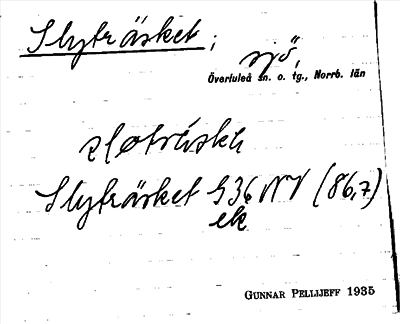 Slyträsket; sjö,
Överluleå sn. o. tg., Norrb. län
Slyträsket G36 NV (86,7)
ek
GUNNAR PELLIJEFF 1935